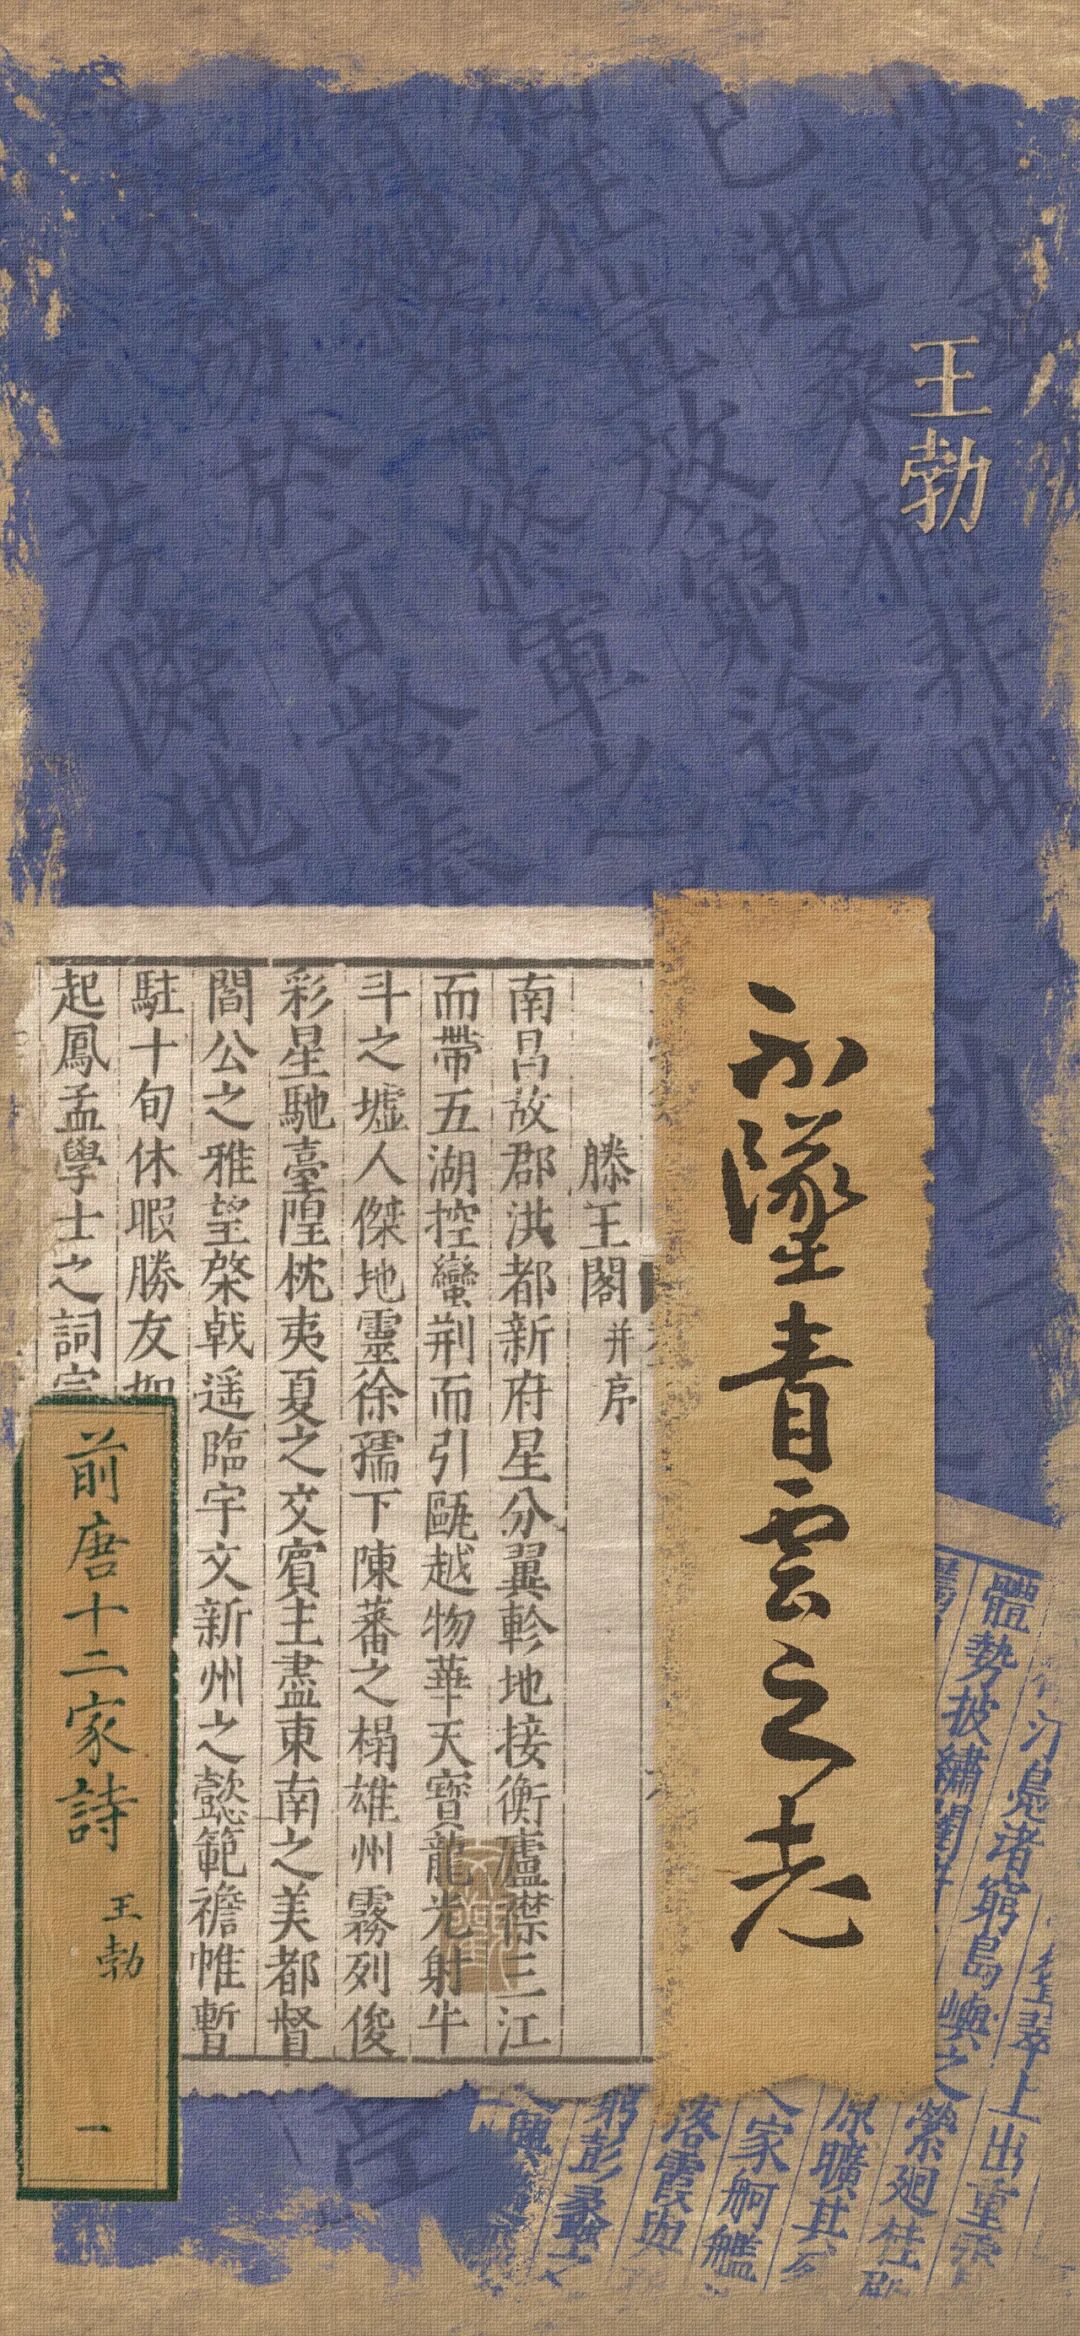 王勃
已逝桑榆非晚
狂豈效窮途
等終軍之
於百齡奉
芳鄰他
不墜青雲之志
滕王閣并序
南昌故郡洪都新府星分翼軫地接衡廬襟三江
而帶五湖控蠻荊而引甌越物華天寶龍光射牛
斗之墟人傑地靈徐孺下陳蕃之榻雄州霧列俊
彩星馳臺隍枕夷夏之交賓主盡東南之美都督
閻公之雅望棨戟遥臨宇文新州之懿範襜帷暫
駐十旬休暇勝友如
起鳳孟學士之詞宗
前唐十二家詩
王勃
一
翠上出重霄
汀鳧渚窮島嶼之縈廻桂殿
體勢披繡闥
原曠其
家舸艦
落霞與
窮彭蠡